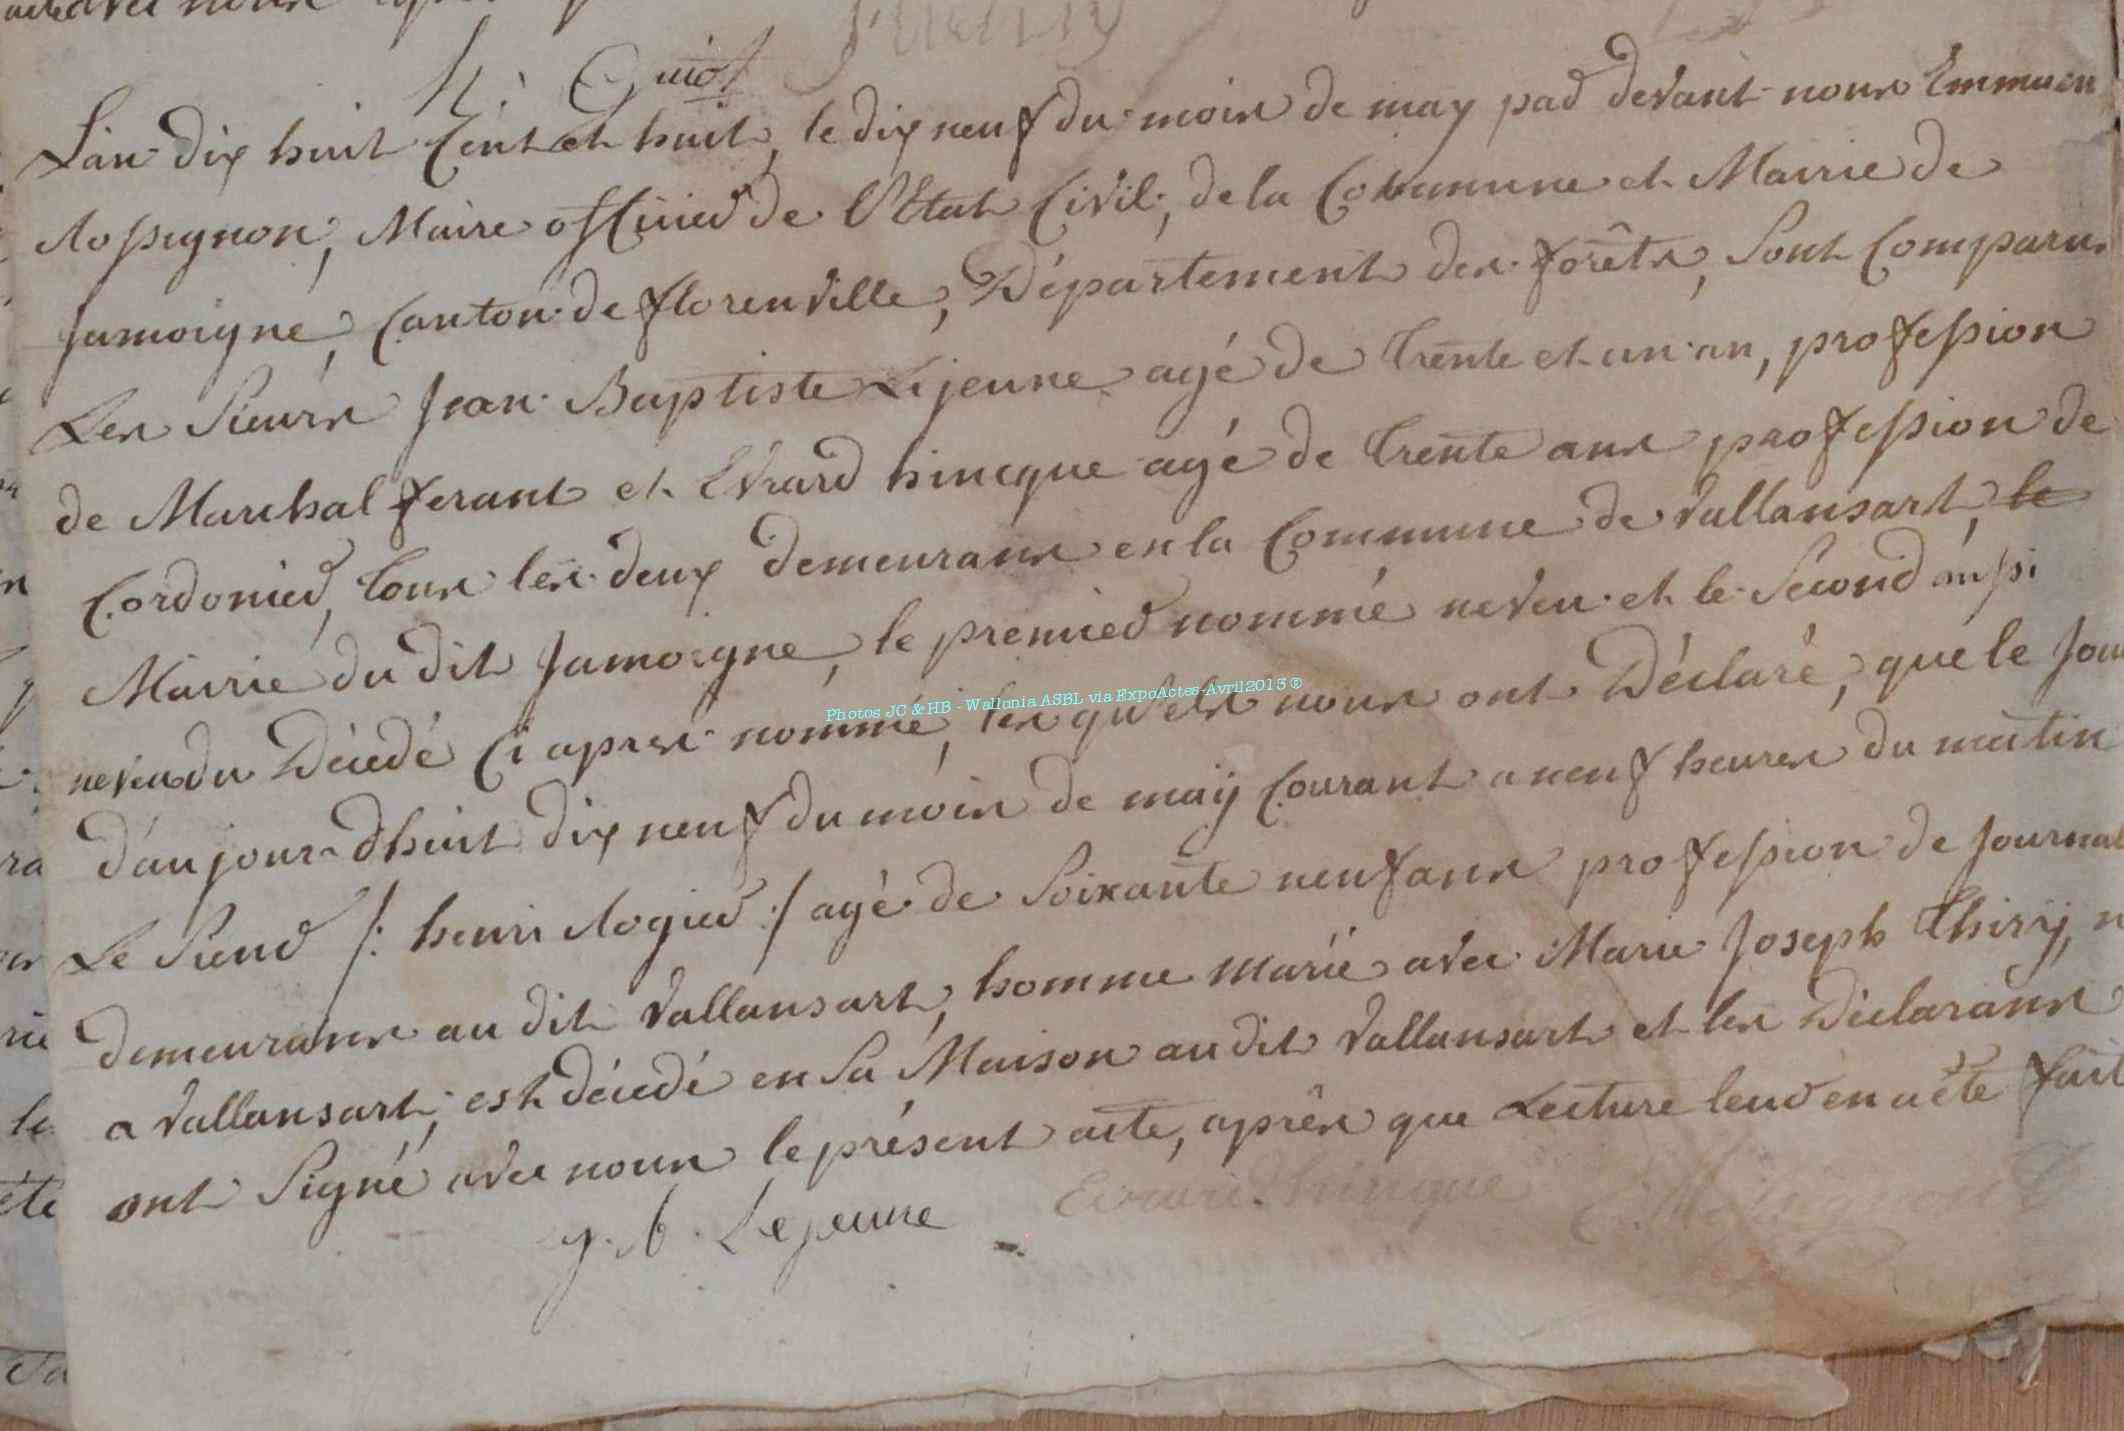 H. Guiot
L'an dix huit Cent et huit, le dix neuf du mois de may par devant nous Emmuen
Rossignon, Maire officier de l'Etat Civil, de la Commune et Mairie de
Jamoigne, Canton de florenville, Département des forêts, Sont Comparus
Les Sieurs Jean Baptiste Lejeune agé de trente et un an, profession
de Marchal ferant et Evrard hincque agé de trente ans profession de
Cordonier, tous les deux demeurans en la Commune de Vallansart, le
Mairie du dit Jamoigne, le premier nommé neveu et le Second aussi
neveu du Décédé Ci apres nommé, les quels nous ont Déclaré, que le Jour
Photos JC & HB - Wallonia ASBL via ExpoActes-Avril2013 ®
d'aujourdhuit dix neuf du mois de maÿ Courant a neuf heures du matin
Le Sieur /: henri Rogier :/ agé de Soixante neuf ans profession de Journal
demeurans au dit Vallansart, homme marié avec Marie Joseph Thirÿ, n
a Vallansart, est décedé en Sa Maison au dit Vallansart et les Déclarans
ont Signé avec nous le présent acte, après que Lecture leur en a été fait
J. b. Lejeune Evrard hincque